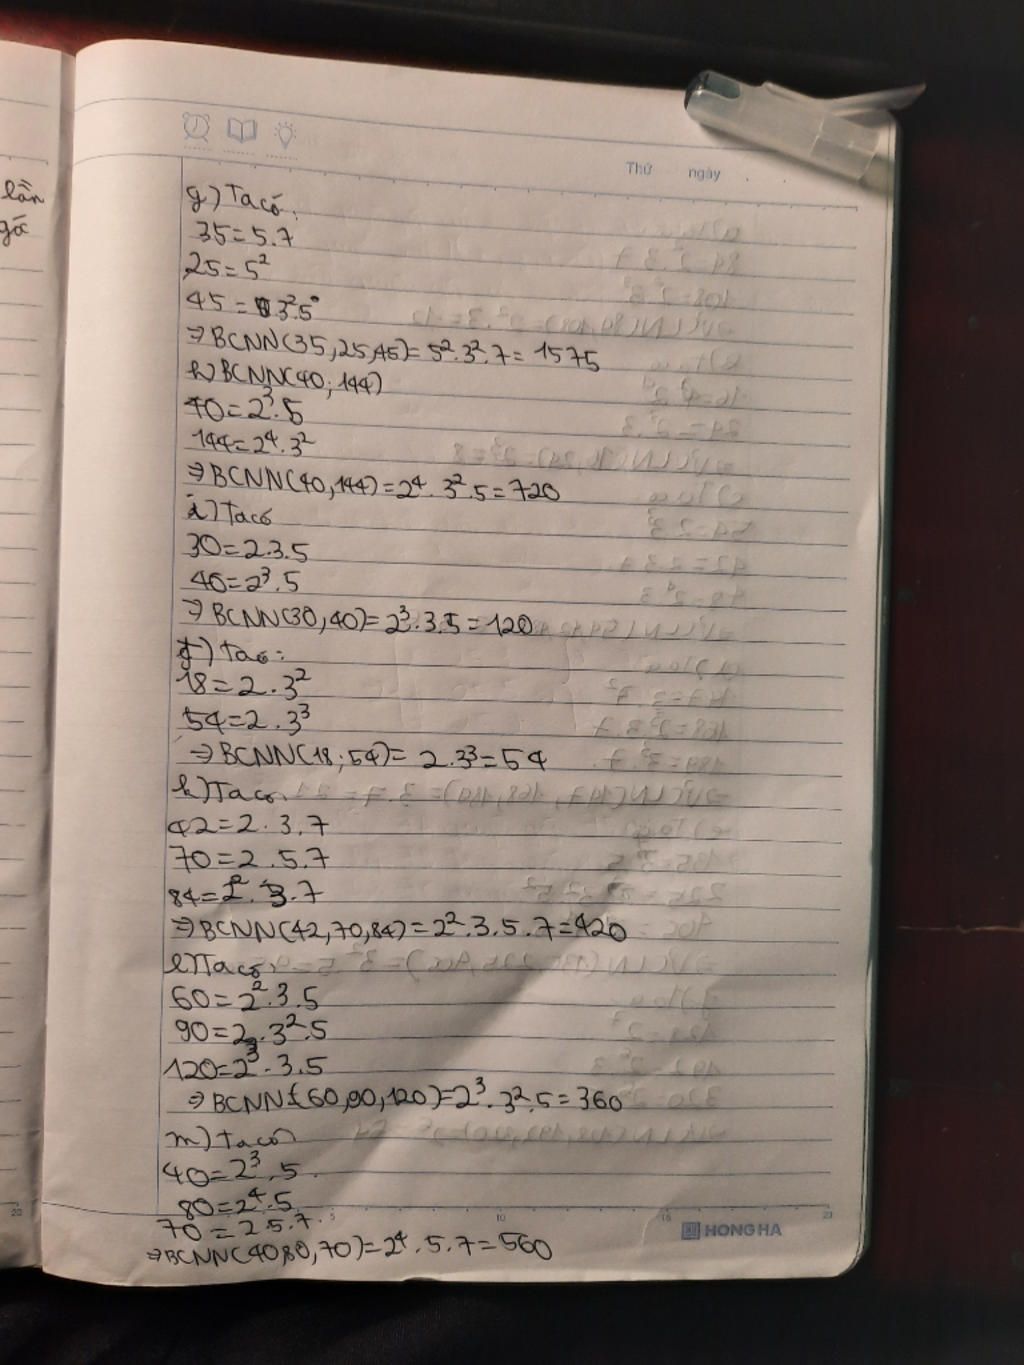 lần
gố
Thứ ngày
g) Ta có
35=5.7
25=5²
45= 3².5
⇒BCNN(35,25,45)=5².3².7=1575
h) BCNN(40;144)
40=2³.5
144=2⁴.3²
⇒BCNN(40,144)=2⁴.3².5=720
i) Ta có
30=2.3.5
40=2³.5
⇒ BCNN(30,40)=2³.3.5=120
j) Ta có:
18=2.3²
54=2.3³
⇒BCNN(18;54)= 2.3³=54
k) Ta có
42=2.3.7
70=2.5.7
84=2².3.7
⇒BCNN(42,70,84)=2².3.5.7=420
l) Ta có
60=2².3.5
90=2.3².5
120=2³.3.5
⇒BCNN(60,90,120)=2³.3².5=360
m) Ta có
40=2³.5
80=2⁴.5
70=2.5.7
⇒BCNN(40,80,70)=2⁴.5.7=560
20 5 10 15 20
HONG HA